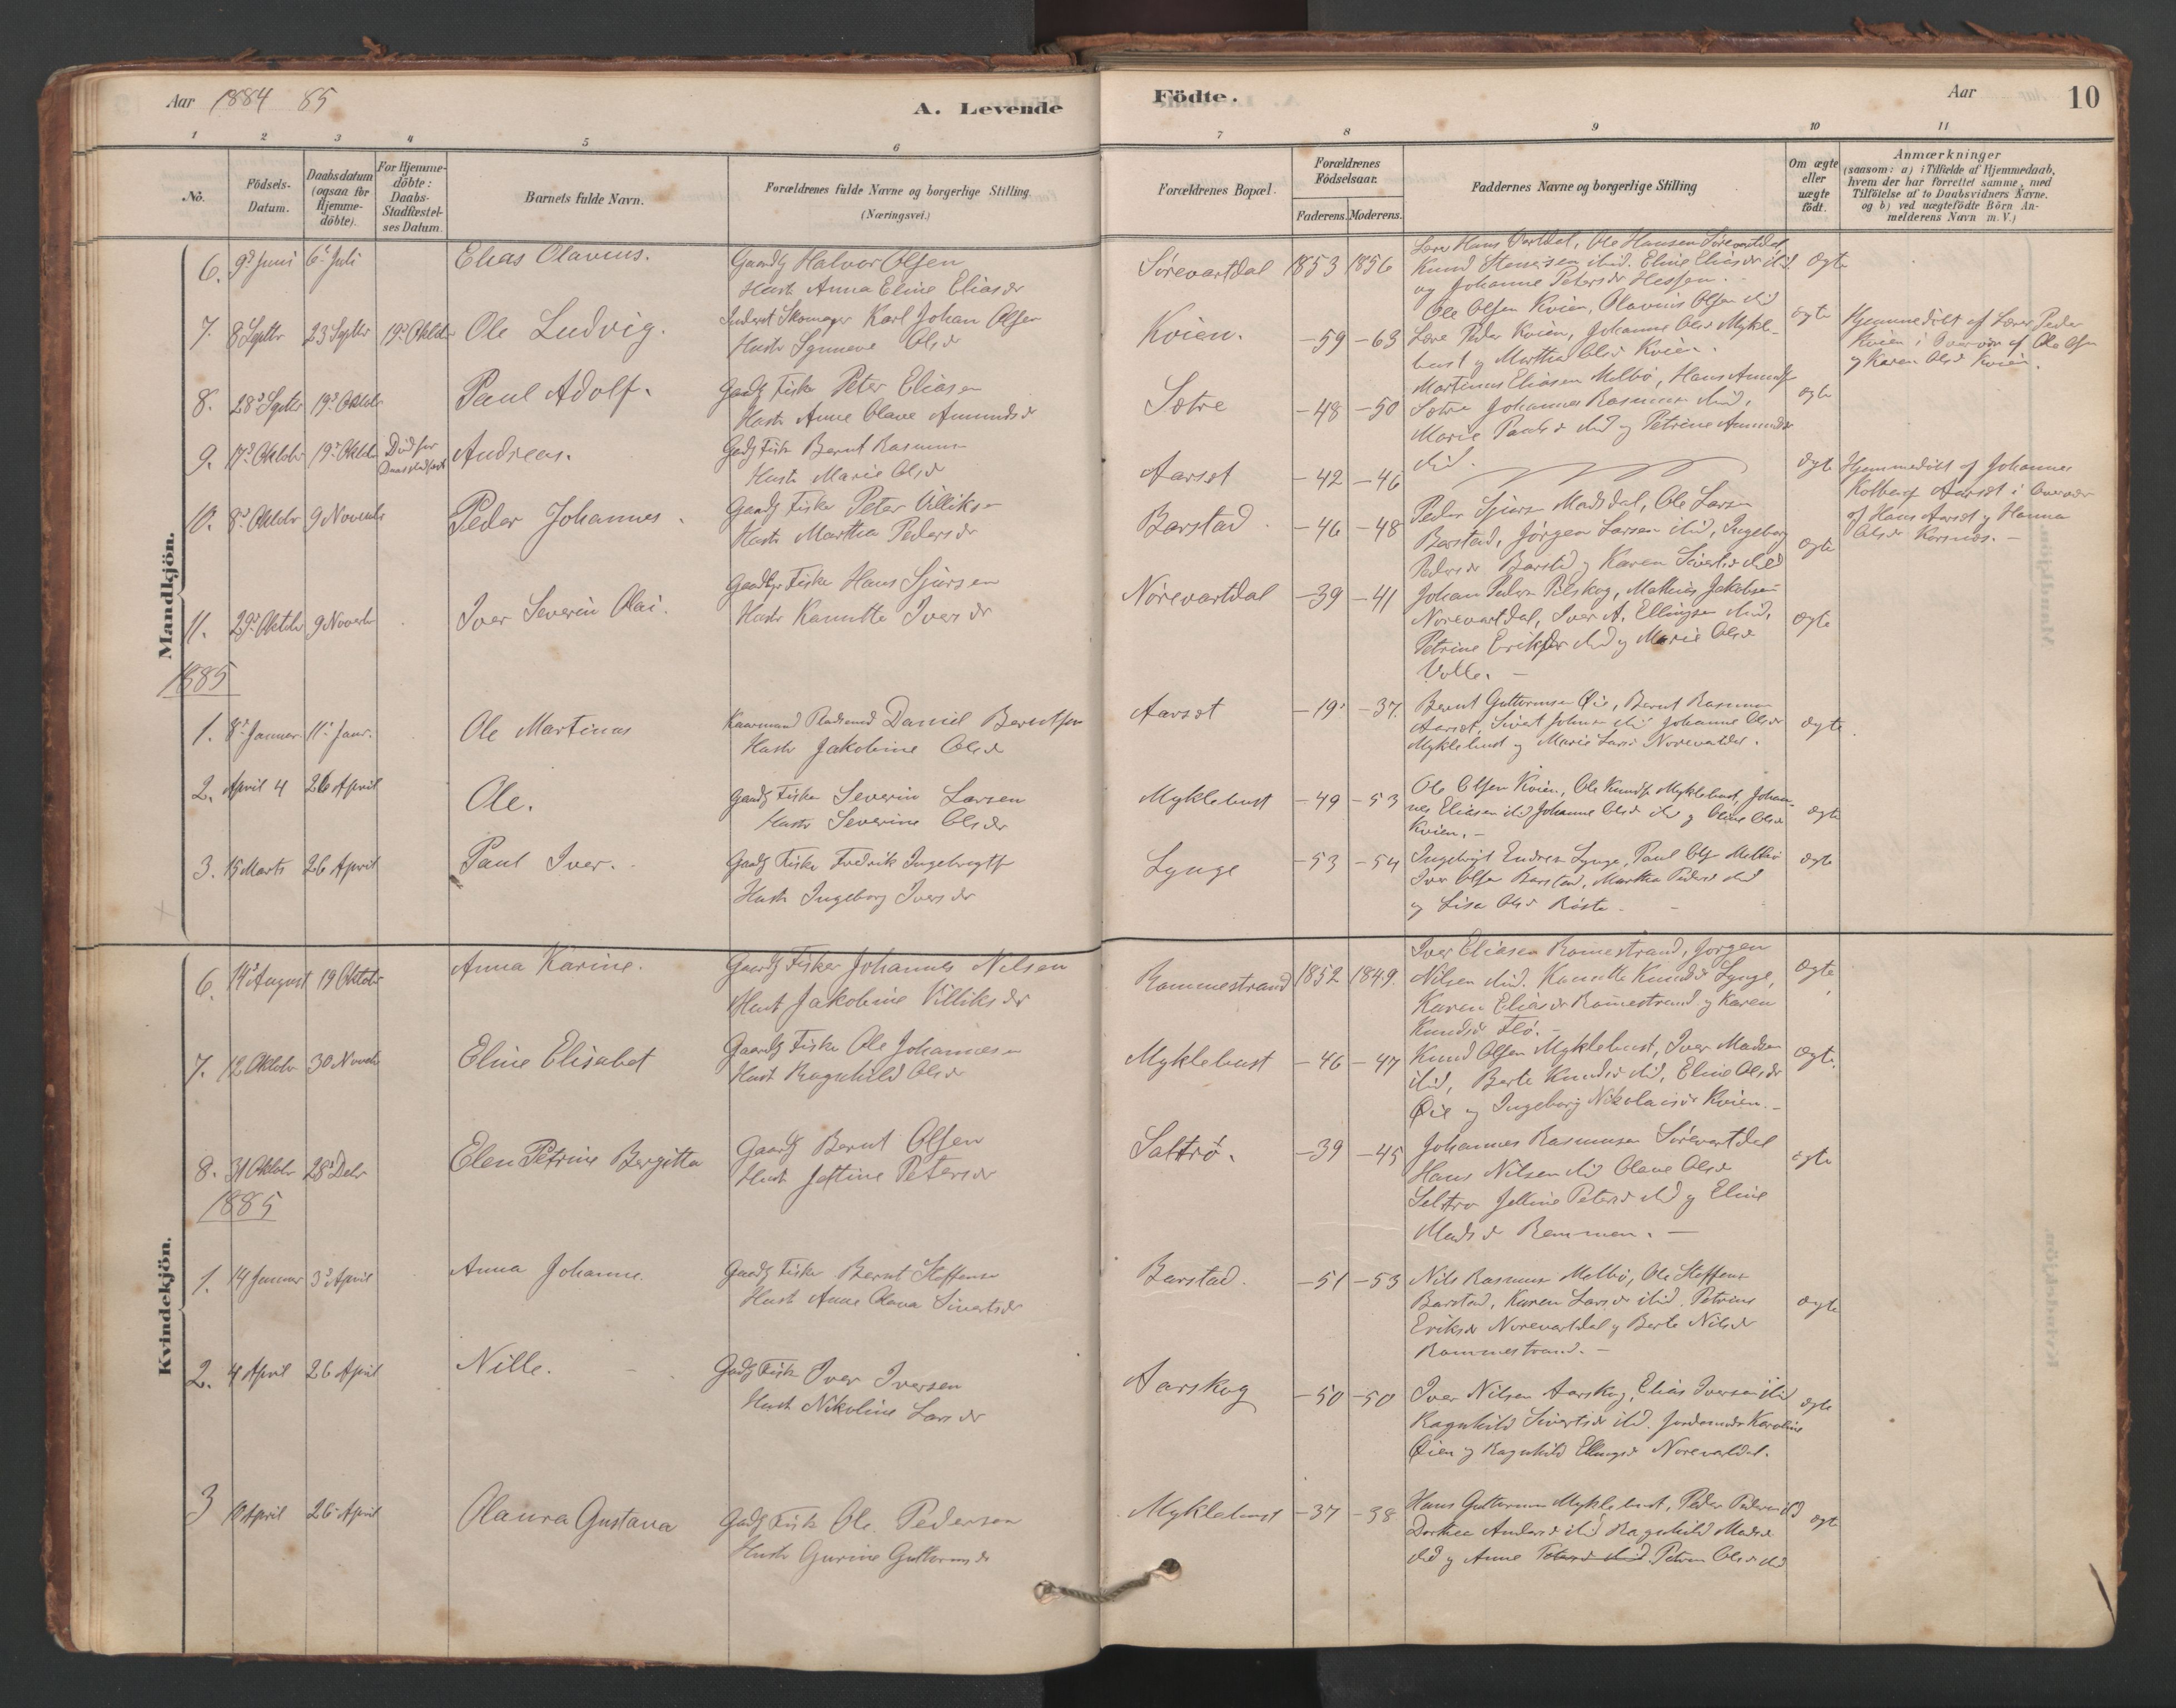 Aar 1884 85
A. Levende
Födte.
Aar
10
1 2 3 4 5 6 7 8 9 10 11
No.
Födsels-
Datum.
Daabsdatum
(ogsaa for
Hjemme-
döbte).
For Hjemme-
döbte:
Daabs-
Stadfæstel-
ses Datum.
Barnets fulde Navn.
Forældrenes fulde Navne og borgerlige Stilling.
(Næringsvei.)
Forældrenes Bopæl.
Forældrenes
Födselsaar.
Faderens. Moderens.
Faddernes Navne og borgerlige Stilling
Om ægte
eller
uægte
födt.
Anmærkninger
(saasom: a) i Tilfælde af Hjemmedaab,
hvem der har forrettet samme, med
Tilföielse af to Daabsvidners Navne.
og b) ved uægtefödte Börn An-
melderens Navn m. V.)
Mandkjön.
6. 9d Juni 6t Juli
Elias Olavius.
Gaardbr Halvor Olsen
Hustr Anna Eline Eliasdr
Sörevartdal 1853 1856
Lærer Hans Vartdal, Ole Hansen Sörevartdal
Knud Stenersen ibid. Eline Eliasdr ibid
og Johanne Petersdr Hessen.
ægte
7. 8 Septbr 23 Septbr 19d Oktbr
Ole Ludvig.
Inderst Skomager Karl Johan Olsen
Hustr Synneve Olsd
Kvien. -59 -63
Ole Olsen Kvien, Olavius Olsen ibid
Lærer Peder Kvien, Johanne Olsd Mykle-
bust og Martha Olsd Kvien.
ægte
Hjemmedöbt af Lærer Peder
Kvien i Overvær af Ole Olsen
og Karen Olsd Kvien.
8. 28d Septbr 19d Oktbr
Paul Adolf.
Gaardbr Fisker Peter Eliasen
Hustr Anne Olave Amundsdr
Sætre -48 -50
Martinus Eliasen Melbö, Hans Amunds
Sætre Johannes Rasmusen ibid,
Marie Paulsd ibid og Petrine Amundsdr
ibid.
ægte
9. 17d Oktbr 19d Oktbr Död för
Daabsstadfæst
Andreas.
Gaardbr Fisker Bernt Rasmusen
Hustr Marie Olsd
Aarset -42 -46
ægte
Hjemmedöbt af Johannes
Kolberg Aarset i Overvær
af Hans Aarset og Hanna
Olsdr Korsnæs.
10. 8d Oktbr 9 Novembr
Peder Johannes.
Gaardbr Fisker Peter Villiksen
Hustr Martha Pedersdr
Barstad. -46 -48
Peder Sjursen Madsdal, Ole Larsen
Barstad, Jörgen Larsen ibid, Ingeborg
Pedersdr Barstd og Karen Sivertsd ibid
ægte
11. 29d Oktbr 9 Novembr
Iver Severin Olai.
Gaardbr Fisker Hans Sjursen
Hustr Kanutte Iversdr
Nörevartdal -39 -41
Johan Peders Pilskog, Mathias Jakobsen
Norevartdal, Iver A. Ellingsen ibid,
Petrine Eriksdr ibid og Marie Olsd
Volle.
ægte
1885
1. 8d Januar 11t Janr.
Ole Martinus
Kaarmand Pladsmd Daniel Berntsen
Hustr Jakobine Olsd
Aarset -19 -37.
Bernt Guttormsen Öie, Bernt Rasmusen
Aarset, Sivert Johnsen ibid Johanne Olsdr
Myklebust og Marie Larsd Norevartdal.
ægte.
2. April 4 26 April
Ole.
Gaardbr Fisker Severin Larsen
Hustr Severine Olsdr
Myklebust -49 -53
Ole Olsen Kvien, Ole Knuds Myklebust, Johan-
nes Eliasen ibid Johanne Olsd ibid og Oline Olsd
Kvien.
ægte
3. 15 Marts 26 April
Paul Iver.
Gaardbr Fisker Fredrik Ingebrigts
Hustr Ingeborg Iversdr
Lynge -53 -54
Ingebrigt Endresen Lynge, Paul Olsen Melbö
Iver Olsen Barstad, Martha Pedersd ibid
og Lisa Olsd Röste
ægte
Kvindekjön.
6. 14d August 19 Oktbr
Anna Karine.
Gaardbr Fisker Johannes Nilsen
Hust Jakobine Villiksdr
Rommestrand 1852 1849.
Iver Eliasen Romestrand, Jörgen
Nilsen ibid. Kanutte Knudsd Lynge,
Karen Eliasdr Romestrand og Karen
Knudsd Flö.
ægte
7. 12 Oktbr 30 Novbr
Eline Elisabet
Gaardbr Fisker Ole Johannesen
Hust Ragnhild Olsdr
Myklebust -46 -47
Knud Olsen Myklebust, Iver Madsen
ibid, Berte Knudsd ibid, Eline Olsdr
Öie og Ingeborg Nikolaisdr Kvien.
ægte.
8. 31 Oktbr 28d Debr
Elen Petrine Bergitta
Gaardbr Bernt Olsen
Hust Jetine Petersdr
Saltrö. -39 -45
Johannes Rasmusen Sörevartdal
Hans Nilsen ibid Olave Olsd
Seltro Jelline Petersd ibid og Eline
Madsdr Remmen.
ægte
1885
1. 14 Januar 3d April
Anna Johanne.
Gaardbr Fisker Bernt Steffensen
Hust Anne Olava Sivertsdr
Barstad. -51 -53
Nils Rasmusen Melbö, Ole Steffens
Barstad, Karen Larsdr ibid, Petrine
Eriksdr Norevartdal og Berte Nilsdr
Rommestrand.
ægte
2. 4 April 26 April
Nille.
Gaardbr Fisker Iver Iversen
Hust Nikoline Larsdr
Aarskog -50 -50
Iver Nilsen Aarskog, Elias Iversen ibid
Ragnhild Sivertsdr ibid. Jordemoder Karoline
Öien og Ragnhild Ellingsd Norevartdal.
ægte
3 10 April 26 April
Olaura Gustava
Gaardbr Fisker Ole Pedersen
Hustr Gurine Guttormsdr
Myklebust -37 -38
Hans Guttormsen Myklebust, Peder Pedersen ibid
Dorthea Andersd ibid Ragnhild Madsd
ibid og Anne Petersd ibid Petrine Olsdr ibid
ægte